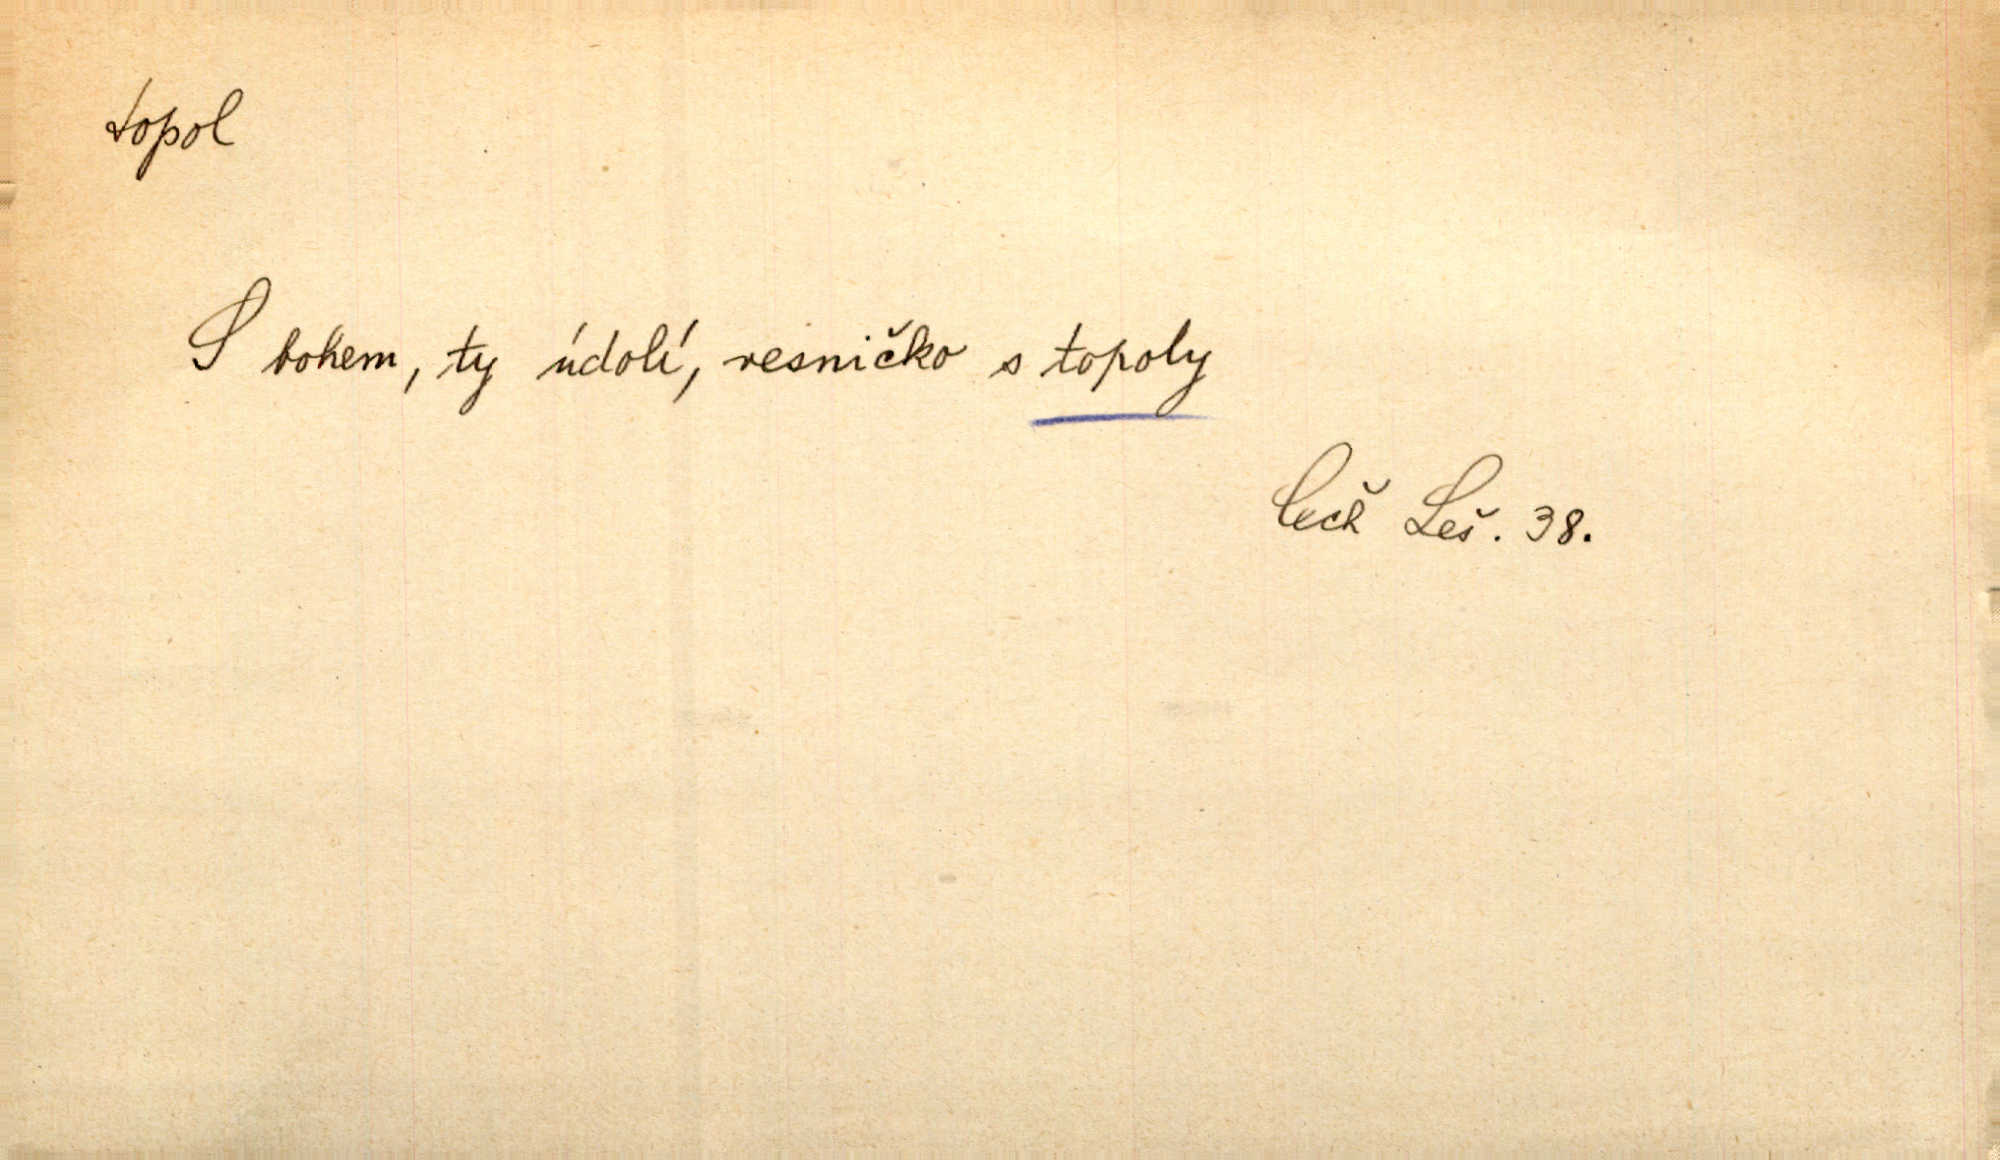 topol
S bohem, ty údolí, vesničko s topoly
Čech Leš. 38.